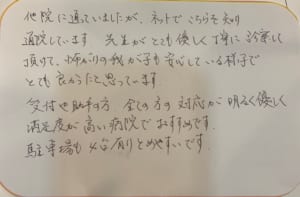 他院に通っていましたが、ネットでこちらを知り
通院しています 先生がとても優しく丁寧に診察して
頂けて、怖がりの我が子も安心している様子で
とても良かったと思っています
受付や助手の方、全ての方の対応が明るく優しく
満足度が高い病院でおすすめです.
駐車場も4台有りとめやすいです.